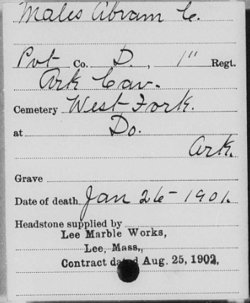 Males Abram C.
Pvt Co. D, 1" Regt.
Ark Cav.
Cemetery West Fork.
at Do.
Ark.
Grave
Date of death Jan 26 - 1901.
Headstone supplied by
Lee Marble Works,
Lee, Mass.,
Contract dated Aug. 25, 1902.